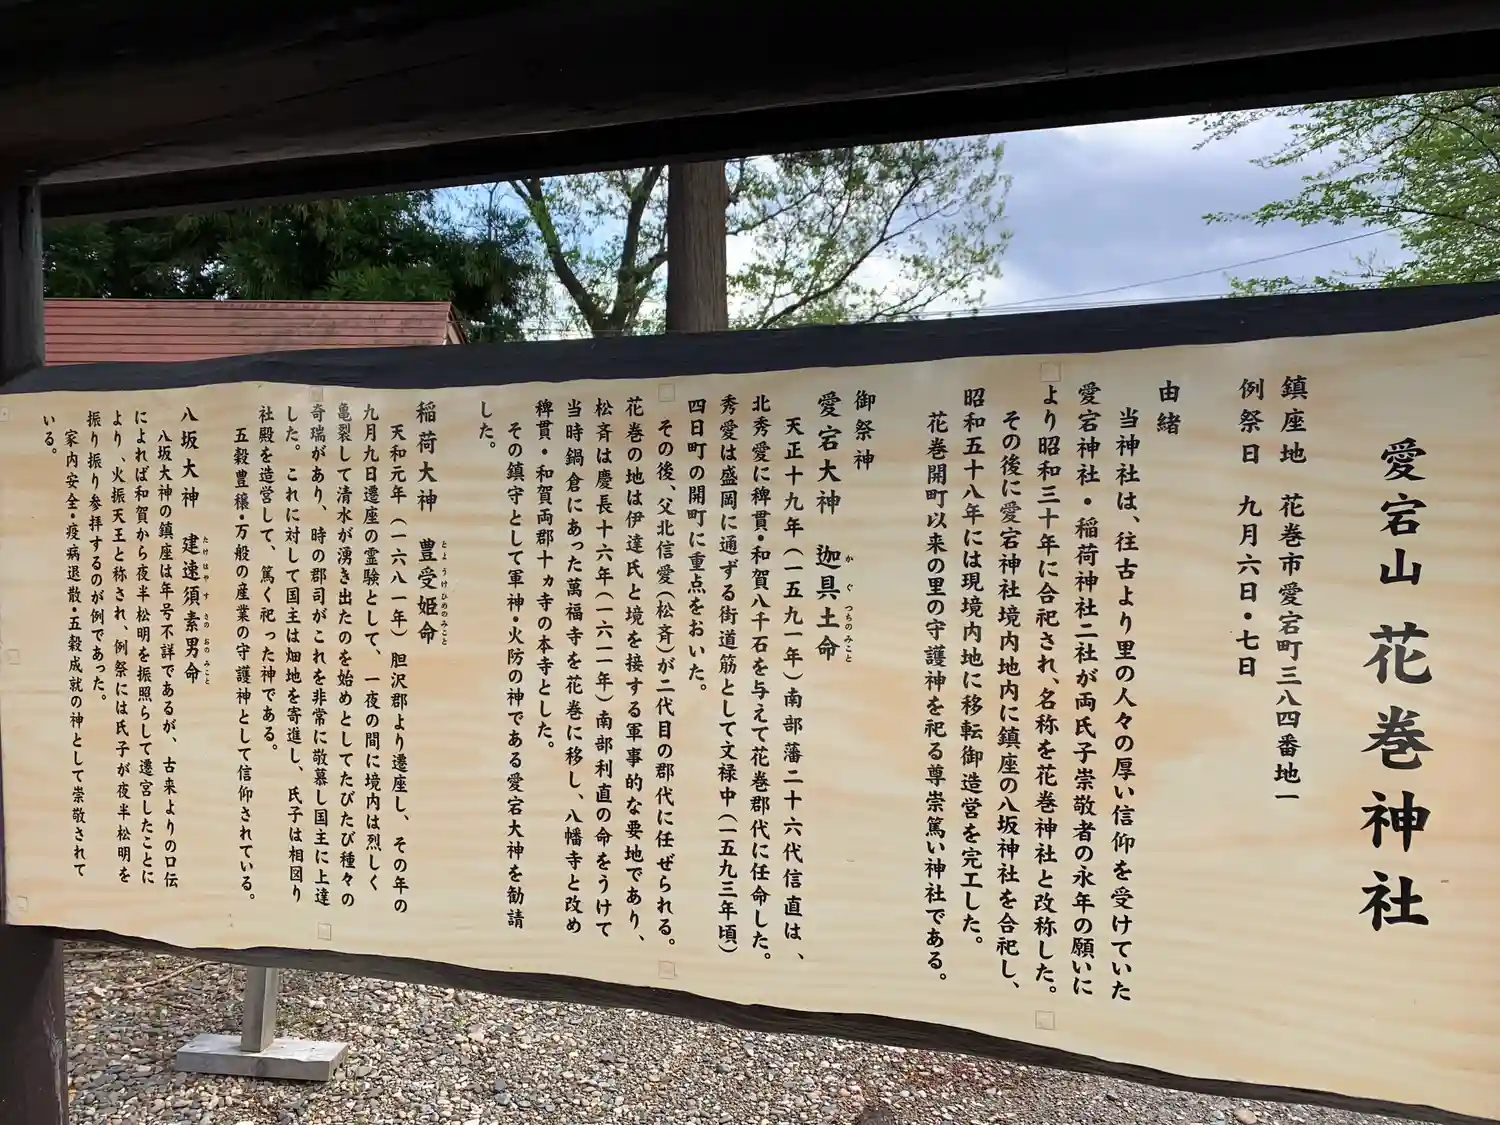 愛宕山 花巻神社
鎮座地 花巻市愛宕町三八四番地一
例祭日 九月六日・七日
由緒
当神社は、往古より里の人々の厚い信仰を受けていた
愛宕神社・稲荷神社二社が両氏子崇敬者の永年の願いに
より昭和三十年に合祀され、名称を花巻神社と改称した。
その後に愛宕神社境内地内に鎮座の八坂神社を合祀し、
昭和五十八年には現境内地に移転御造営を完工した。
花巻開町以来の里の守護神を祀る尊崇篤い神社である。
御祭神
愛宕大神 迦具土命
かぐつちのみこと
天正十九年(一五九一年)南部藩二十六代信直は、
北秀愛に稗貫・和賀八千石を与えて花巻郡代に任命した。
秀愛は盛岡に通ずる街道筋として文禄中(一五九三年頃)
四日町の開町に重点をおいた。
その後、父北信愛(松斉)が二代目の郡代に任ぜられる。
花巻の地は伊達氏と境を接する軍事的な要地であり、
松斉は慶長十六年(一六一一年)南部利直の命をうけて
当時鍋倉にあった萬福寺を花巻に移し、八幡寺と改め
稗貫・和賀両郡十ヵ寺の本寺とした。
その鎮守として軍神・火防の神である愛宕大神を勧請
した。
稲荷大神 豊受姫命
とようけひめのみこと
天和元年(一六八一年)胆沢郡より遷座し、その年の
九月九日遷座の霊験として、一夜の間に境内は烈しく
亀裂して清水が湧き出たのを始めとしてたびたび種々の
奇瑞があり、時の郡司がこれを非常に敬慕し国主に上達
した。これに対して国主は畑地を寄進し、氏子は相図り
社殿を造営して、篤く祀った神である。
五穀豊穣・万般の産業の守護神として信仰されている。
八坂大神 建速須素男命
たけはやすさのおのみこと
八坂大神の鎮座は年号不詳であるが、古来よりの口伝
によれば和賀から夜半松明を振照らして遷宮したことに
より、火振天王と称され、例祭には氏子が夜半松明を
振り振り参拝するのが例であった。
家内安全・疫病退散・五穀成就の神として崇敬されて
いる。